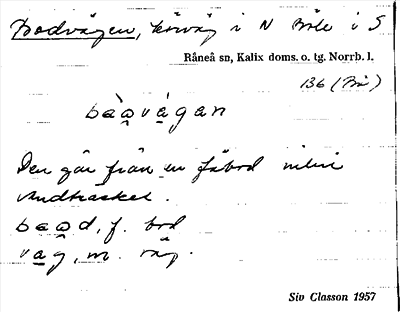 Bodvägen, körväg i N Böle i S
Råneå sn, Kalix doms. o. tg. Norrb. l.
136 (Bö)
bà̀a̯vágan
Den går från en fäbod intill
Andträsket.
baad, f. bod
vag, m. väg.
Siv Classon 1957